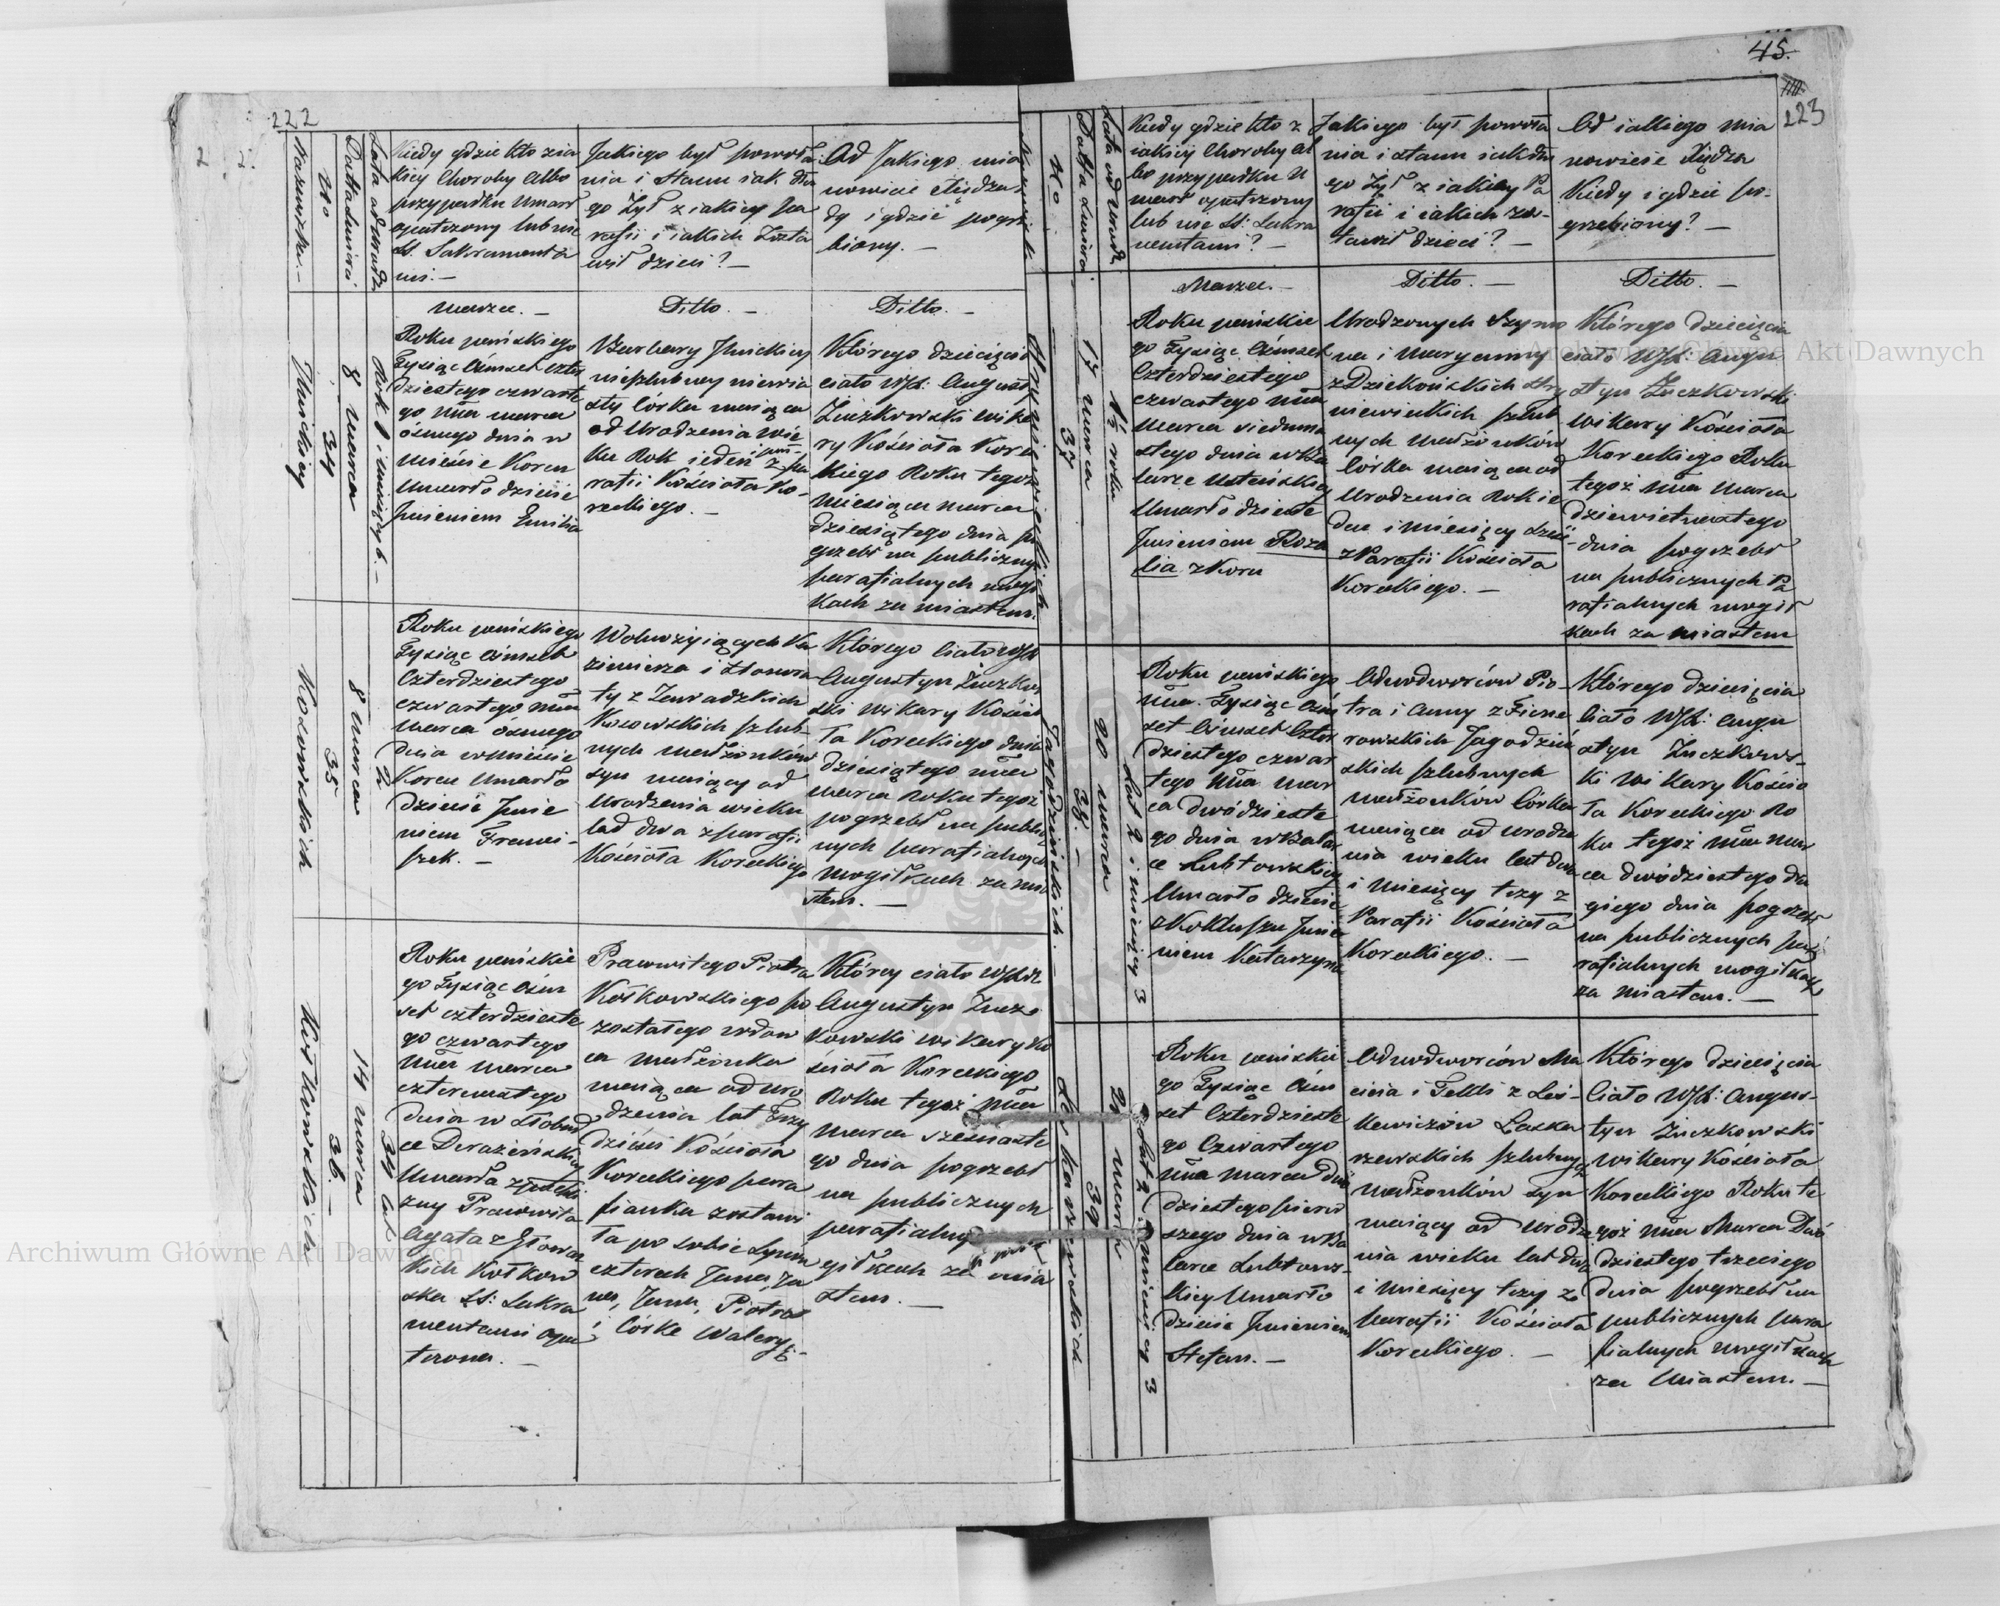 222
Nazwiska. —
No
Datta śmierci
Lata od urodz
Kiedy gdzie kto z ia
kiey Choroby albo
przypadku umarł
opatrzony lub nie
SS. Sakramenta
mi. —
Jakiego był powoła
nia i stanu iak dłu
go żył z iakiey pa
rafii i iakich zosta
wił dzieci? —
Od Jakiego mia
nowicie Xiędza
dy i gdzie pogrze
biony. —
Marzec. —
Ditto. —
Ditto. —
34
8 marca
Rok 1 i miesięcy 6. —
Roku pańskiego
Tysiąc Óśmset czter
dziestego czwarte
go mca marca
ósmego dnia w
mieście Korcu
Umarło dziecie
Imieniem Emilia
Barbary
nieszlubney niewia
sty Córka maiąca
od Urodzenia wie
ku Rok ieden z pa
rafii Kościoła Ko-
reckiego. —
Którego dziecięcia
ciało WJX: Augus
Żuczkowski wika
ry Kościoła Kore
kiego Roku tegoż
miesiąca marca
dziesiątego dnia po
grzebł na publicznych
parafialnych mogił
kach za miastem.
35
8 marca
2
Roku pańskiego
Tysiąc Óśmset
Czterdziestego
czwartego mca
marca ósmego
dnia w mieście
Korcu Umarło
dziecie Imie
niem Franci-
szek. —
Wolnożyiących Ka
zimierza i Honora
ty z Zawadzkich
Kosowskich szlub-
nych małżonków
syn maiący od
Urodzenia wieku
lad dwa z parafii
Kościoła Koreckiego
Którego Ciało WJX
Augustyn Żuczkow
ski wikary Kościo
ła Koreckiego dnia
dziesiątego mca
marca Roku tegoż
pogrzebł na public
nych parafialnych
mogiłkach za mia
stem. —
36. —
14 marca
34 lat
Roku pańskie
go Tysiąc Óśm
set czterdzieste
go czwartego
mca marca
czternastego
dnia w Słobod
ce Deraźeńskiey
Umarła
Pracowita
Agata z Głowac
kich Kołkow
ska SS: Sakra
mentami opa
trzona. —
Pracowitego Piotra
Kołkowskiego po
zostałego wdow
ca małżonka
maiąca od uro
dzenia lat trzy
dzieści Kościoła
Koreckiego para
fianka zostawi
ła po sobie Synów
czterech Jana, Ja
na, Piotra
i Córkę Walery
Którey ciało WJX
Augustyn Żucz
kowski wikary Ko
ścioła Koreckiego
Roku tegoż mca
marca szesnaste
go dnia pogrzebł
na publicznych
parafialnych mo
giłkach za mia
stem. —
45.
223
No
Datta śmierci
Lata od urodz
Kiedy gdzie kto z
iakiey Choroby al
bo przypadku u
marł opatrzony
lub nie SS: Sakra
mentami? —
Jakiego był powoła
nia i stanu iak dłu
go żył z iakiey Pa
rafii i iakich zo-
stawił dzieci? —
Od iakiego mia
nowicie Xiędza
Kiedy i gdzie po-
grzebiony? —
Marzec. —
Ditto. —
Ditto. —
37
17 marca
1½ roku
Roku pańskie
go Tysiąc Óśmset
Czterdziestego
czwartego mca
marca siedmna
stego dnia w Ba
larce
Umarło dziecie
Imieniem Roza
lia z Koru
Urodzonych Szymo
na i Maryanny
z Dziekońskich Hry
niewieckich szlub
nych małżonków
Córka maiąca od
Urodzenia Rok ie
den i miesięcy sześć
z Parafii Kościoła
Koreckiego. —
Którego dziecięcia
ciało WJX: Augu
styn Żuczkowski
wikary Kościoła
Koreckiego Roku
tegoż mca Marca
dziewietnastego
dnia pogrzebł
na publicznych Pa
rafialnych mogił
kach za miastem
Jagodzińskich. —
38. —
20 marca
Lat 2 i miesięcy 3
Roku pańskiego
mca. Tysiąc Óśm
set Óśmset Czter
dziestego czwar
tego mca mar
ca dwódzieste
go dnia w Balar
ce Lubtowskiey
Umarło dziecie
z Kokluszu Imie
niem Katarzyna
Odnodworców Pio-
tra i Anny z Ficne
rowskich Jagodziń
skich szlubnych
małżonków Córka
maiąca od urodze
nia wieku lat dwa
i miesięcy trzy z
Parafii Kościoła
Koreckiego. —
Którego dziecięcia
Ciało WJX: Augu
styn Żuczkows-
ki wikary Kościo
ła Koreckiego Ro
ku tegoż mca mar
ca dwódziestego dru
giego dnia pogrzebł
na publicznych pa
rafialnych mogiłkach
za miastem. —
39
21 marca
Lat 2 miesięcy 3
Roku pańskie
go Tysiąc Óśm
set Czterdzieste
go Czwartego
mca marca dwó
dziestego pierw
szego dnia w Ba
larce Lubtows-
kiey Umarło
dziecie Imieniem
Stefan. —
Odnodworców Ma
cieia i Tekli z Les-
kiewiczów Laska
rzewskich szlubnych
małżonków syn
maiący od urodze
nia wieku lat dwa
i miesięcy trzy z
Parafii Kościoła
Koreckiego. —
Którego dziecięcia
Ciało WJX: Augus-
tyn Żuczkowski
wikary Kościoła
Koreckiego Roku te
goż mca Marca Dwó
dziestego trzeciego
dnia pogrzebł na
publicznych para
fialnych mogiłkach
za Miastem. —
Archiwum Główne Akt Dawnych
Archiwum Główne Akt Dawnych